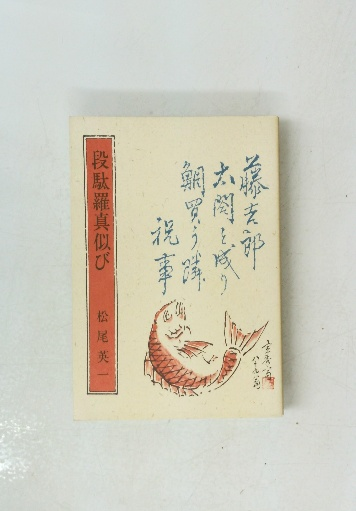 藤吉郎
太閤と成り
鯛買う隣
祝事
段駄羅真似び
松尾英一